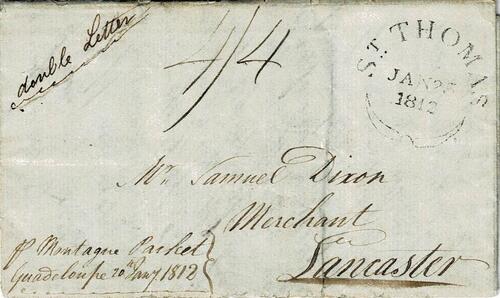 double Letter
4/4
ST. THOMAS
JAN 25
1812
Mr. Samuel Dixon
Merchant
Lancaster
pr Montague Packet
Guadeloupe 20th Jany 1812